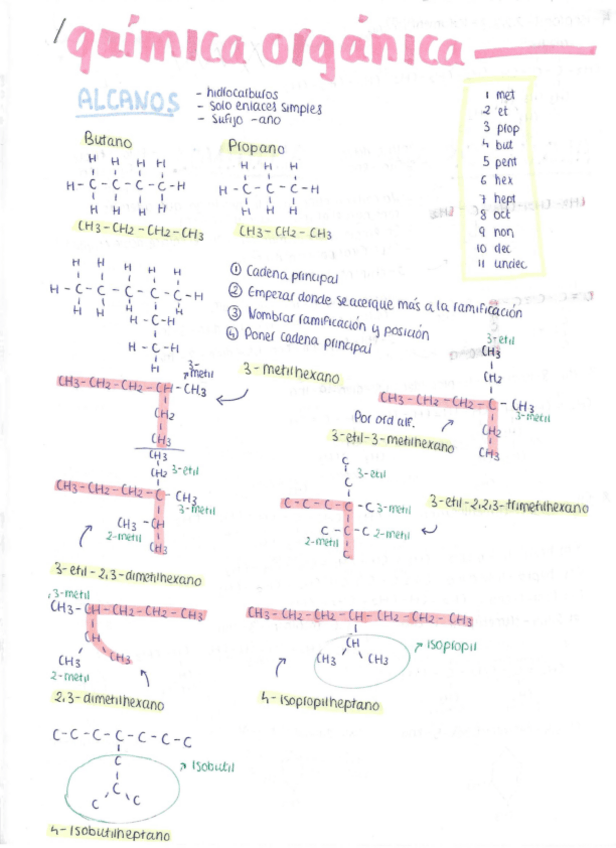 química orgánica
ALCANOS
- hidrocarburos
- solo enlaces simples
- sufijo -ano
1 met
2 et
3 prop
4 but
5 pent
6 hex
7 hept
8 oct
9 non
10 dec
11 undec
Butano
H H H H
H-C-C-C-C-H
H H H H
CH3-CH2-CH2-CH3
Propano
H H H
H-C-C-C-H
H H H
CH3-CH2-CH3
H H H H H
H-C-C-C-C-C-C-H
H H H H H
H-C-H
H-C-H
H
① Cadena principal
② Empezar donde se acerque más a la ramificación
③ Nombrar ramificación y posición
④ Poner cadena principal
3-metil
CH3-CH2-CH2-CH-CH3
CH2
CH3
3-metilhexano
3-etil
CH3
CH2
CH3-CH2-CH2-C-CH3
3-metil
CH2
CH3
Por ord alf.
3-etil-3-metilhexano
CH3
CH2 3-etil
CH3-CH2-CH2-C-CH3
3-metil
CH3-CH
2-metil
CH3
3-etil-2,3-dimetilhexano
C
C 3-etil
C-C-C-C-C 3-metil
C-C-C 2-metil
2-metil
C
3-etil-2,2,3-trimetilhexano
3-metil
CH3-CH-CH2-CH2-CH3
CH
CH3 CH3
2-metil
2,3-dimetilhexano
CH3-CH2-CH2-CH-CH2-CH2-CH3
CH
CH3 CH3
isopropil
4-isopropilheptano
C-C-C-C-C-C-C
C
C
C C
isobutil
4-isobutilheptano